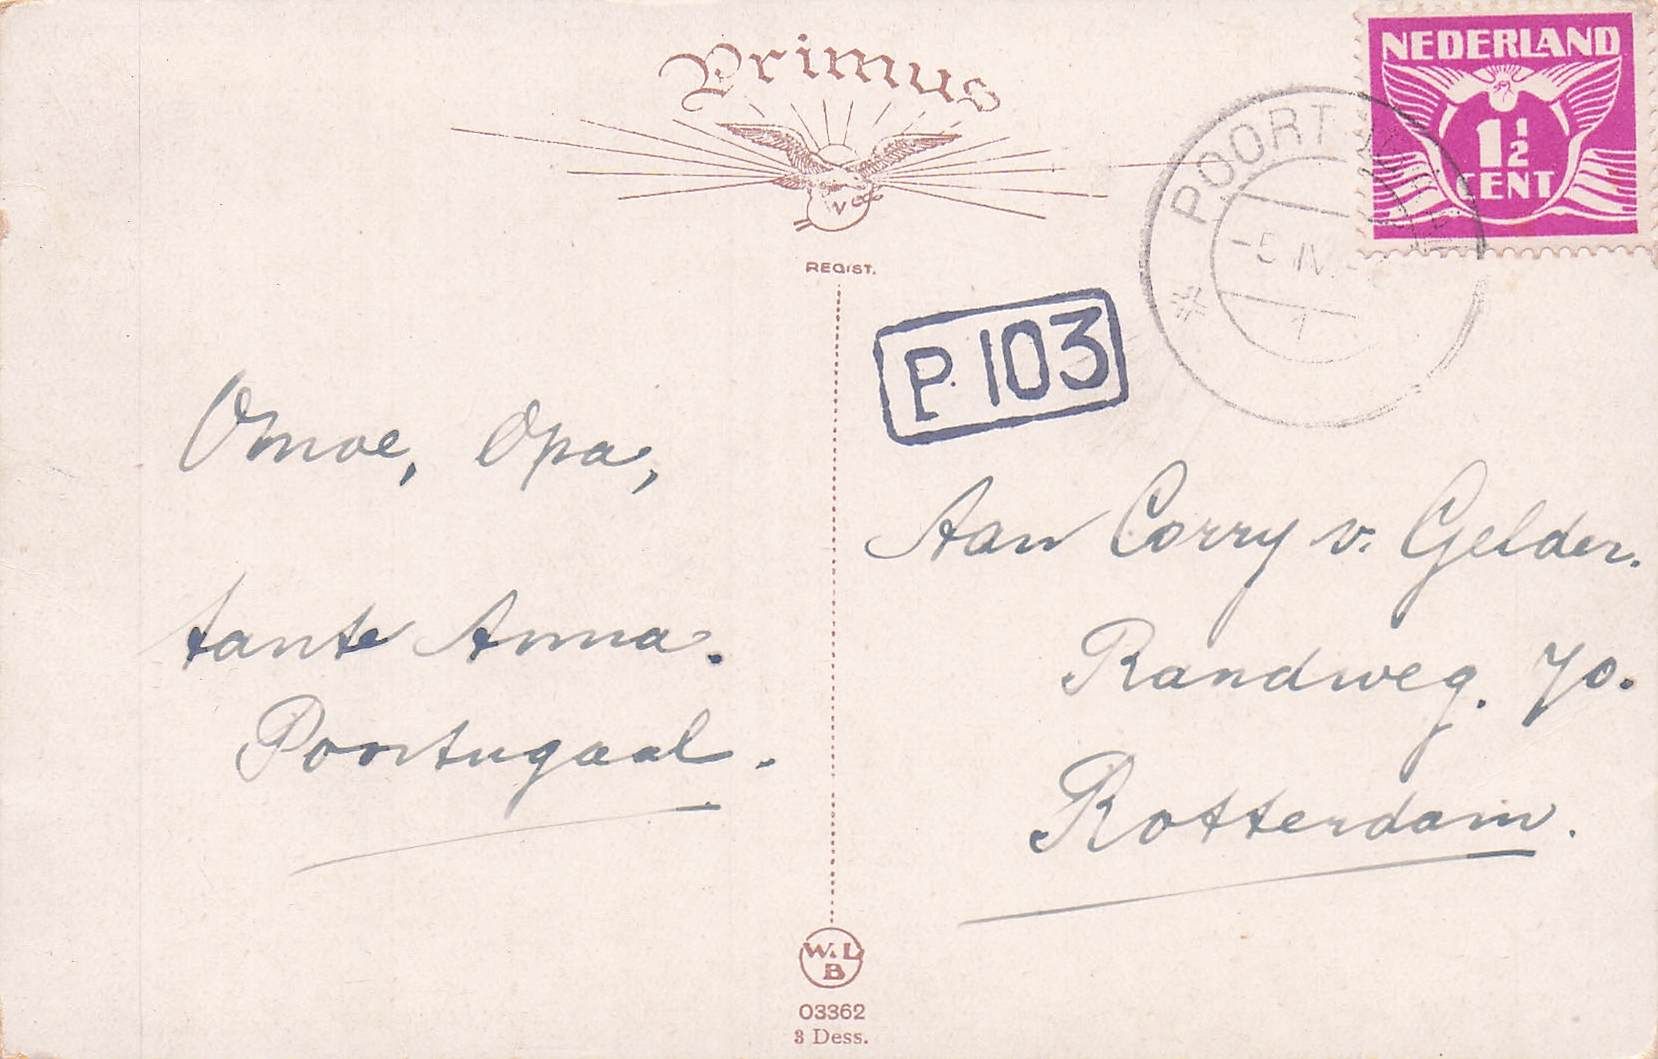 Primus
REGIST.
NEDERLAND
1½
CENT
POORT
-5 IV
P.103
Omoe, Opa,
tante Anna.
Poortugaal.
Aan Corry v. Gelder.
Randweg. 70.
Rotterdam.
W.L
B
03362
3 Dess.